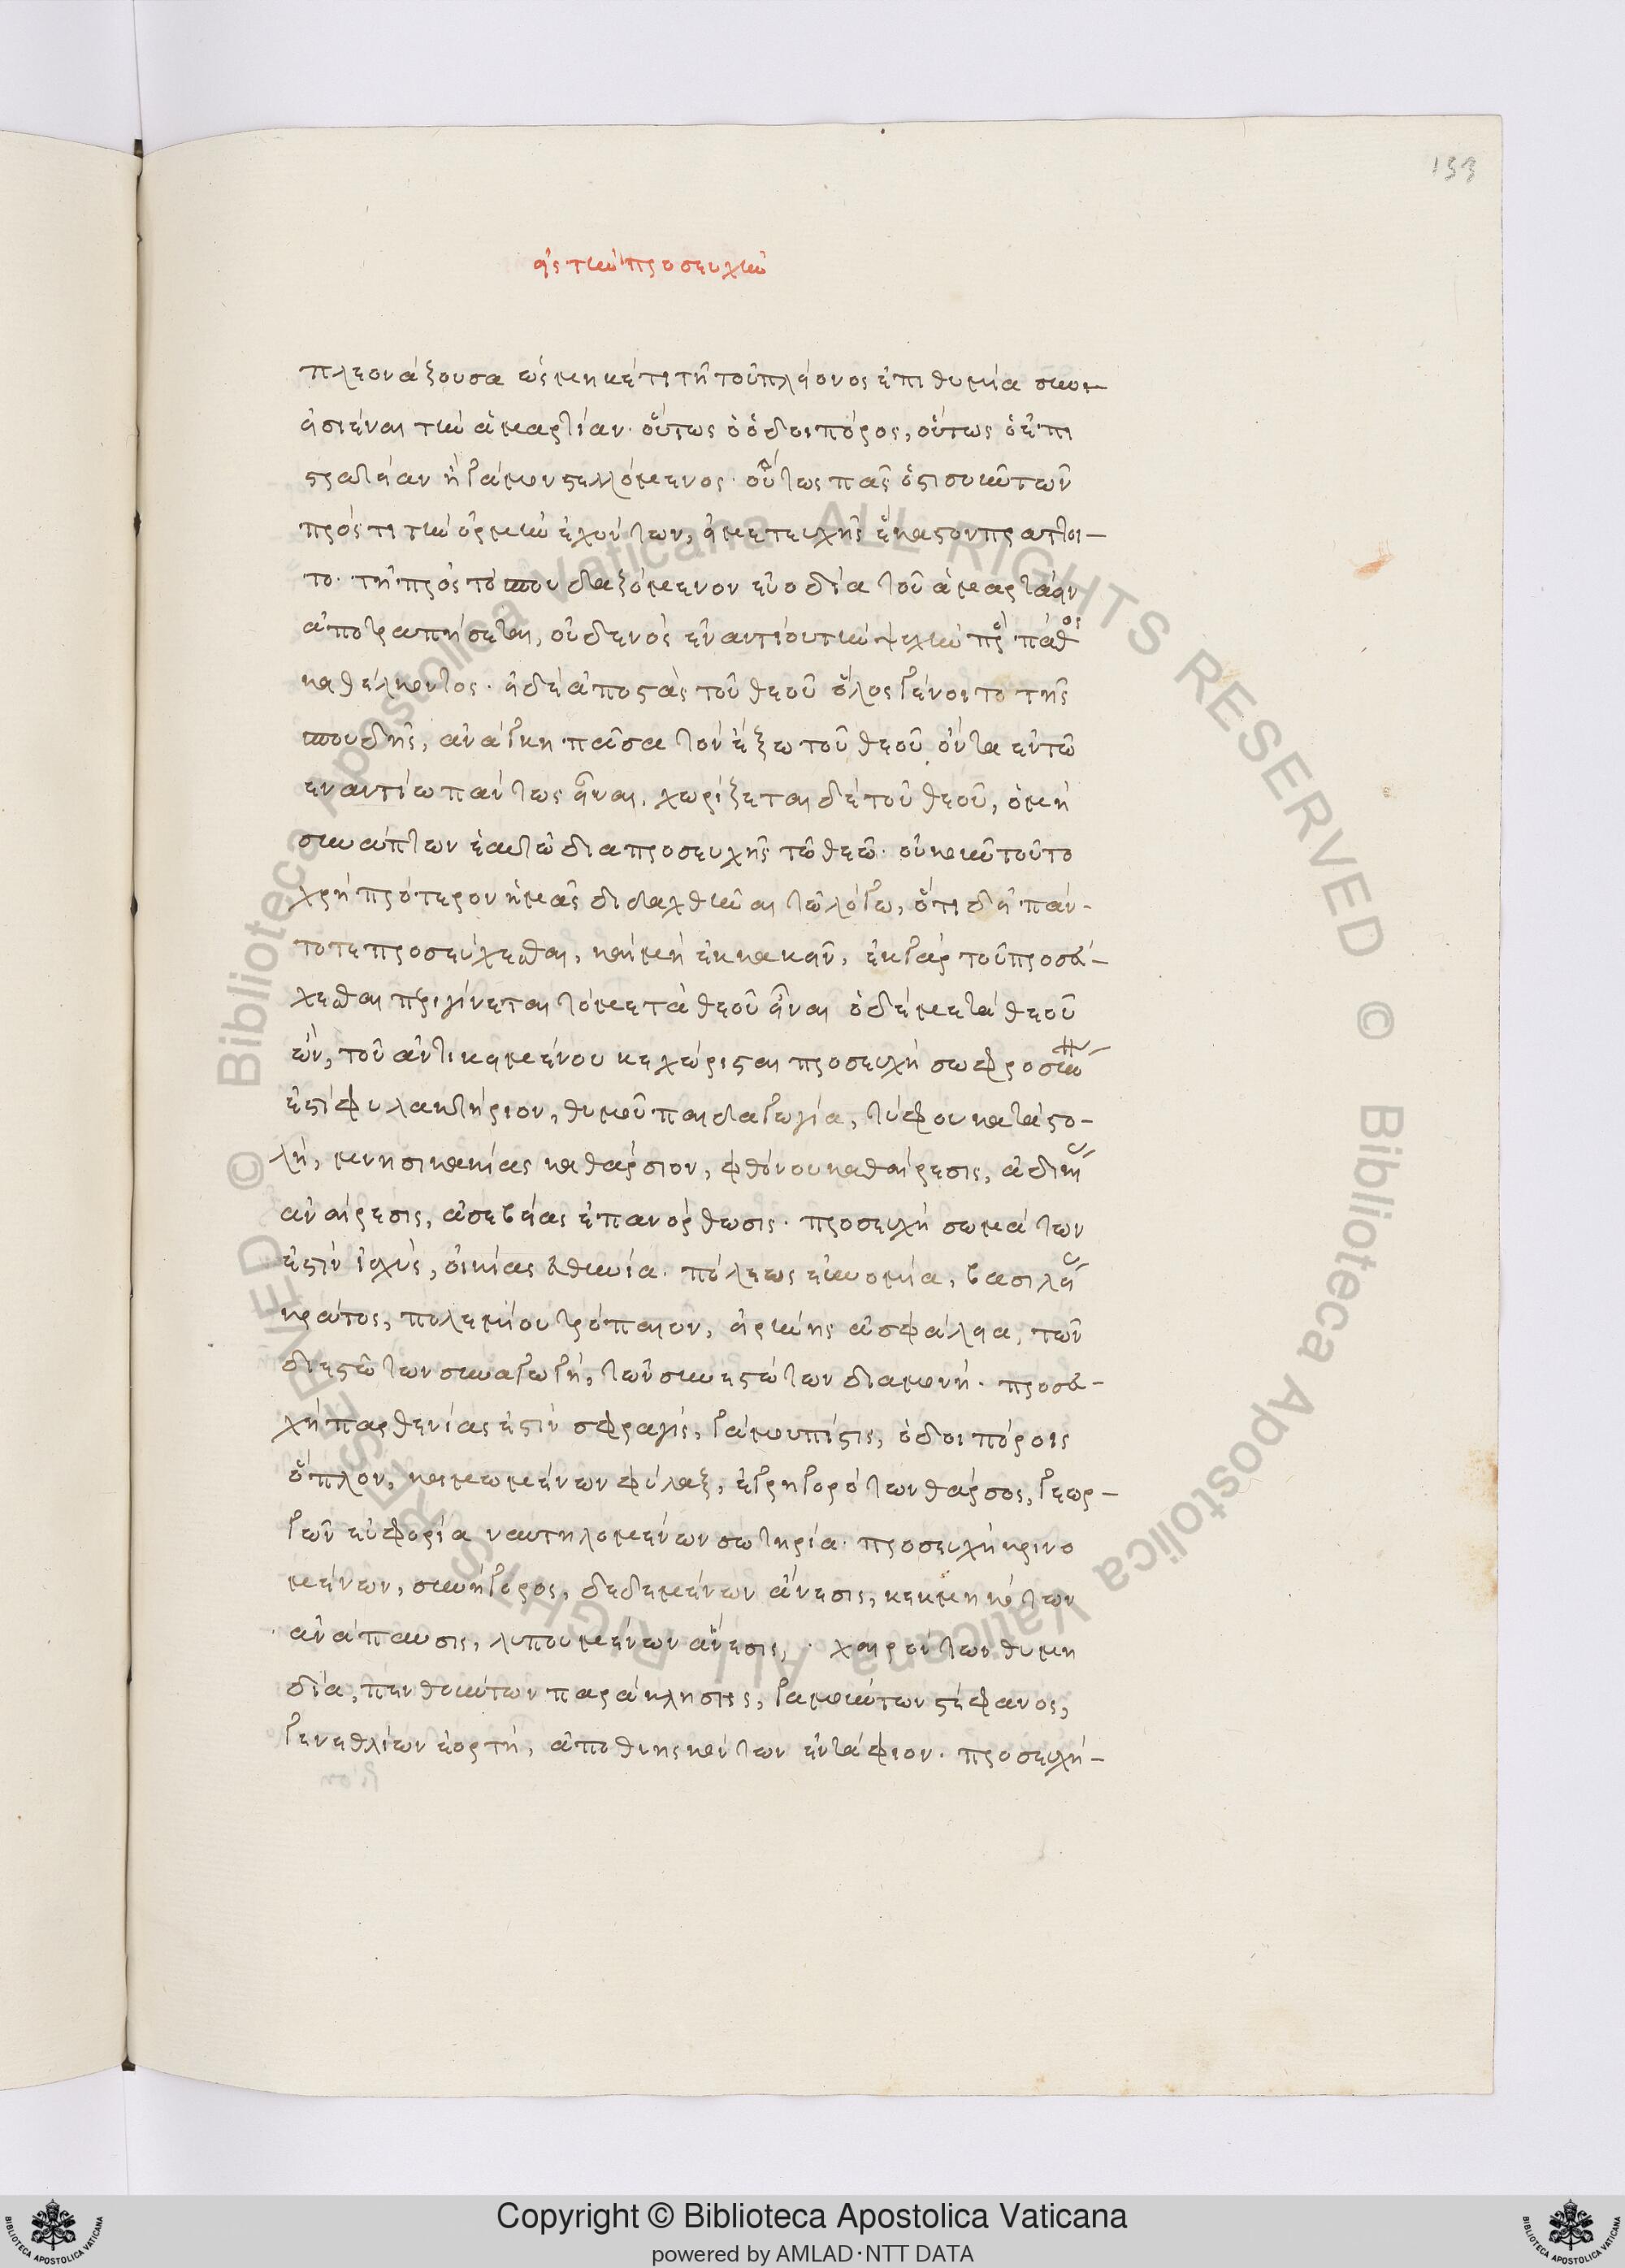 133
εἰς τὴν προσευχήν
πλεονάζουσα ὡς μηκέτι τῆ τοῦ πλείονος ἐπιθυμία συν-
εισιέναι τὴν ἁμαρτίαν· οὕτως ὁ ὁδοιπόρος, οὕτως ὁ ἐπι
στρατείαν ἢ γάμον στελλόμενος· οὕτως πᾶς ὅστισοῦν τῶν
πρός τι τὴν ὁρμὴν ἐχόντων, εἰ μετ' εὐχῆς ἕκαστον πράττοι-
το· τῆ πρὸς τὸ σπουδαζόμενον εὐοδία τοῦ ἁμαρτάειν
ἀποτραπήσεται, οὐδενὸς ἐναντίου τὴν ψυχὴν πρὸς πάθος
καθέλκοντος· εἰ δὲ ἀποστὰς τοῦ θεοῦ ὅλος γένοιτο τῆς
σπουδῆς, ἀνάγκη πᾶσα τὸν ἔξω τοῦ θεοῦ ὄντα ἐν τῶ
ἐναντίω πάντως εἶναι. χωρίζεται δὲ τοῦ θεοῦ, ὁ μὴ
συνάπτων ἑαυτὸν διὰ προσευχῆς τῶ θεῶ· οὐκοῦν τοῦτο
χρὴ πρότερον ἡμᾶς διδαχθῆναι τῶ λόγω, ὅτι δεῖ πάν-
τοτε προσεύχεσθαι, καὶ μὴ ἐκκακεῖν, ἐκ γὰρ τοῦ προσεύ-
χεσθαι περιγίνεται τὸ μετὰ θεοῦ εἶναι ὁ δὲ μετὰ θεοῦ
ὢν, τοῦ ἀντικειμένου κεχώρισται προσευχὴ σωφροσύνης
ἐστὶ φυλακτήριον, θυμοῦ παιδαγωγία, τύφου καταστο-
λὴ, μνησικακίας καθάρσιον, φθόνου καθαίρεσις, ἀδικίας
ἀναίρεσις, ἀσεβείας ἐπανόρθωσις· προσευχὴ σωμάτων
ἐστὶν ἰσχὺς, οἰκίας εὐθηνία· πόλεως εὐνομία, βασιλείας
κράτος, πολεμίου τρόπαιον, εἰρήνης ἀσφάλεια, τῶν
διεστώτων συναγωγὴ, τῶν συνεστώτων διαμονή· προσευ-
χὴ παρθενίας ἐστὶν σφραγὶς, γάμου πίστις, ὁδοιπόροις
ὅπλον, κοιμωμένων φύλαξ, ἐγρηγορότων θάρσος, γεωρ-
γῶν εὐφορία ναυτηλομένων σωτηρία· προσευχὴ κρινο
μένων, συνήγορος, δεδεμένων ἄνεσις, κεκμηκότων
ἀνάπαυσις, λυπουμένων ἄνεσις, · χαιρόντων θυμη
δία, πενθούντων παράκλησις, γαμούντων στέφανος,
γενεθλίων ἑορτὴ, ἀποθνησκόντων ἐντάφιον· προσευχὴ-
Copyright © Biblioteca Apostolica Vaticana
powered by AMLAD·NTT DATA